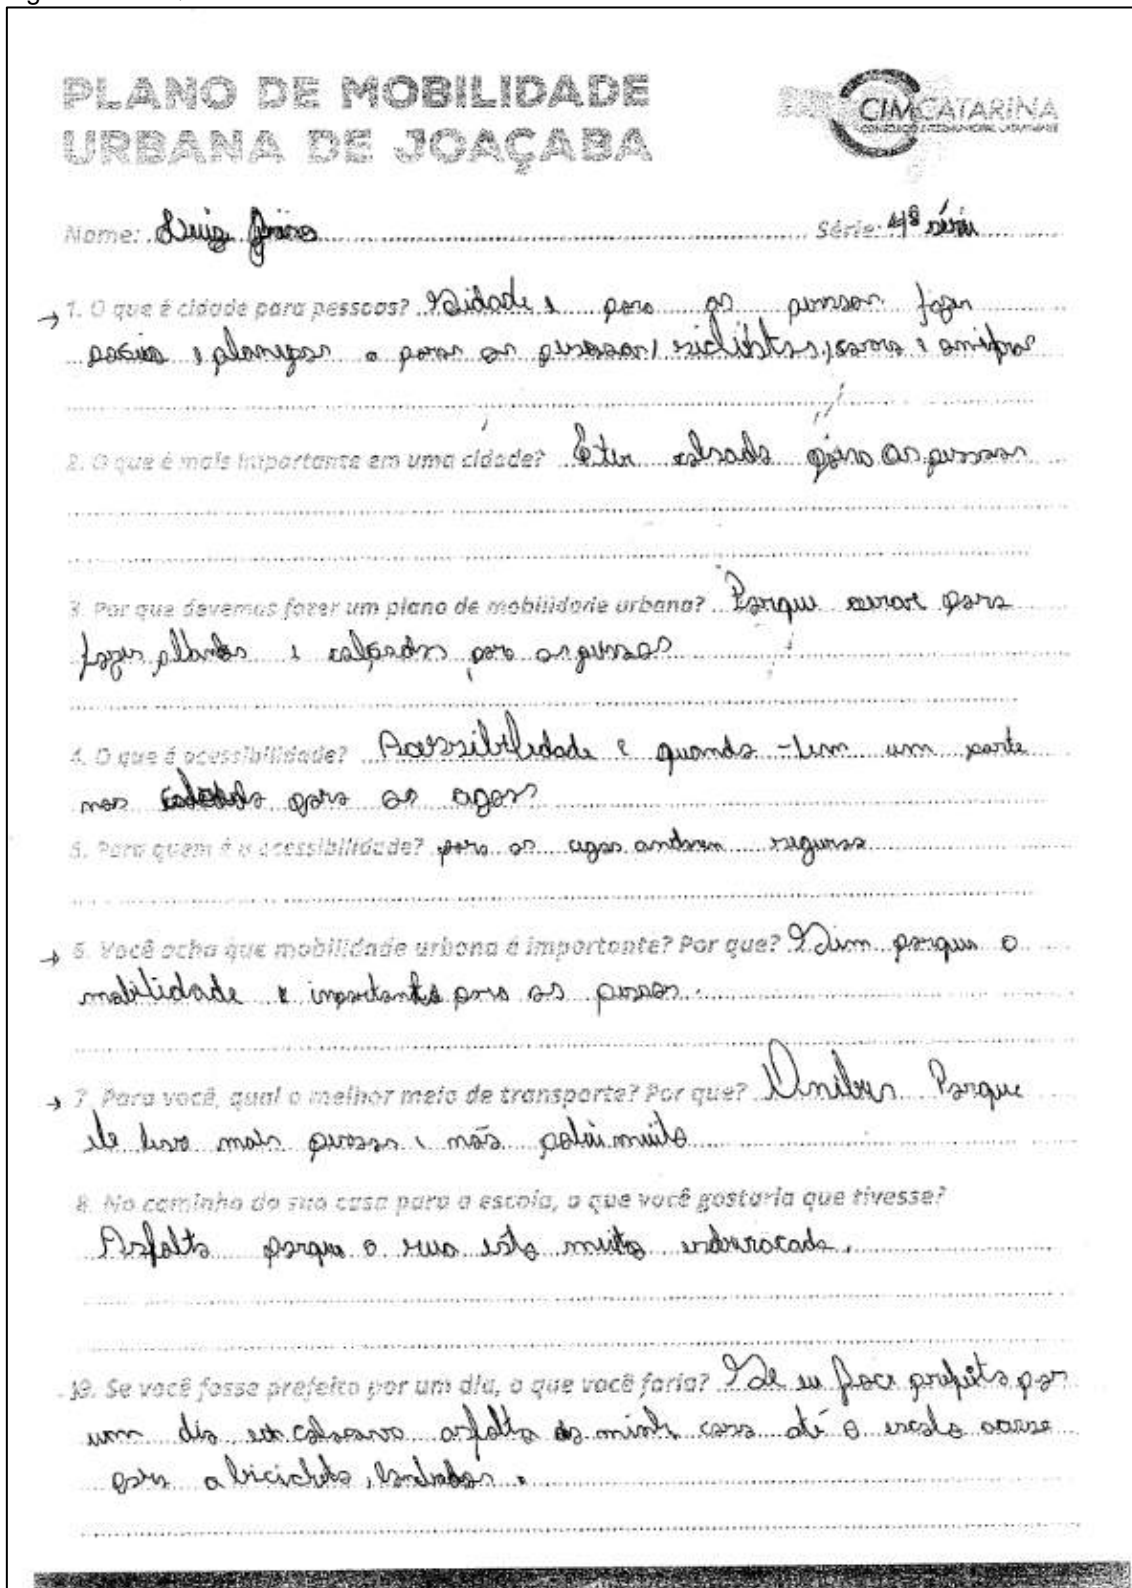 PLANO DE MOBILIDADE
URBANA DE JOAÇABA
CIMCATARINA
Nome: Luiz Série: 4ª série
1. O que é cidade para pessoas? Sidade e para as pessoas fazer
e planejar a para as pessoas, siclistas, carros e
2. O que é mais importante em uma cidade? É ter calsada para as pessoas
3. Por que devemos fazer um plano de mobilidade urbana? Porque para
fazer planos e calçadas para as pessoas
4. O que é acessibilidade? Acessibilidade e quando tem um parte
nas para os segos
5. Para quem é a acessibilidade? para os segos andarem
6. Você acha que mobilidade urbana é importante? Por que? Sim porque a
mobilidade e importante para as pessoas.
7. Para você, qual o melhor meio de transporte? Por que? Onibus Porque
ele leva mais pessoas, mãs polui muito
8. No caminho da sua casa para a escola, o que você gostaria que tivesse?
Asfalto porque a rua está muito esburacada.
10. Se você fosse prefeito por um dia, o que você faria? Se eu foce prefeito por
um dia eu asfalto da minha casa até a escola
para a bicicleta,